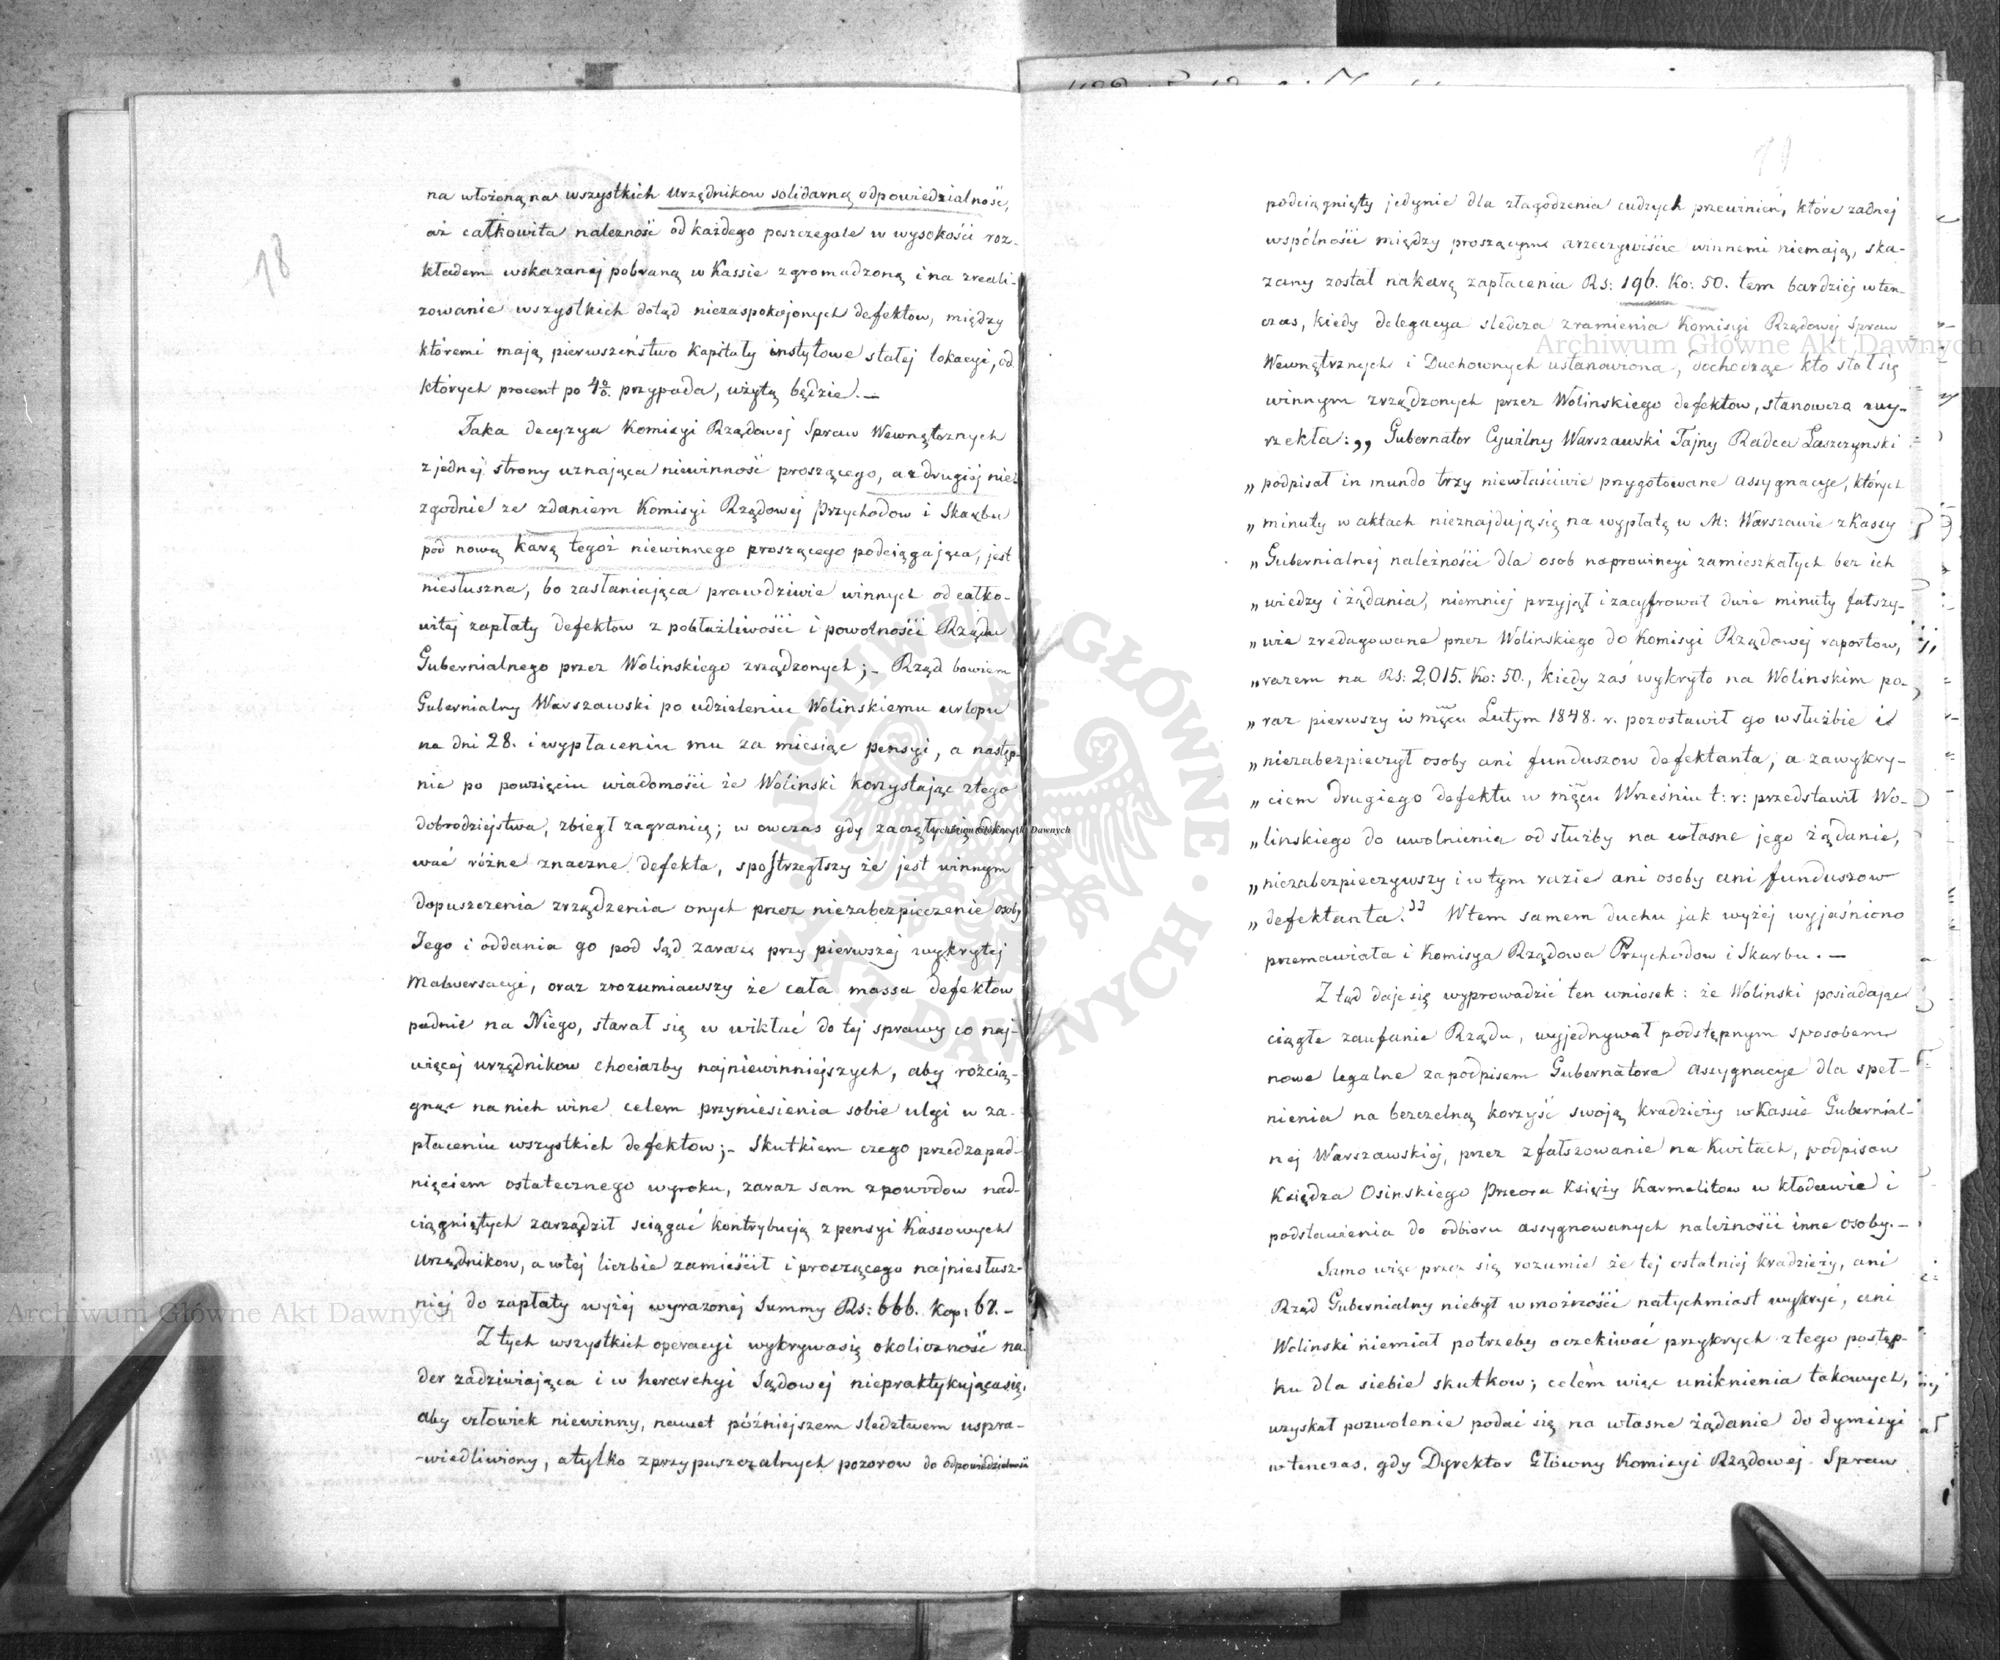 18
na włożoną na wszystkich Urzędnikow solidarną odpowiedzialność,
aż całkowita należność od każdego poszczegole w wysokości roz-
kładem wskazanej pobraną w Kassie zgromadzoną i na zreali-
zowanie wszystkich dotąd niezaspokojonych defektow, między
któremi mają pierwszeństwo Kapitały instytowe stałej lokacyi, od
których procent po 4% przypada, użytą będzie.—
Taka decyzya Komisyi Rządowej Spraw Wewnętrznych
z jednej strony uznająca niewinność proszącego, a z drugiej nie-
zgodnie ze zdaniem Komisyi Rządowej Przychodow i Skarbu
pod nową karę tegoż niewinnego proszącego podciągająca, jest
niesłuszna, bo zasłaniająca prawdziwie winnych od całko-
witej zapłaty defektow z pobłażliwości i powolności Rządu
Gubernialnego przez Wolinskiego zrządzonych;- Rząd bowiem
Gubernialny Warszawski po udzieleniu Wolinskiemu urlopu
na dni 28. i wypłaceniu mu za miesiąc pensyi, a następ-
nie po powzięciu wiadomości że Wolinski korzystając ztego
dobrodziejstwa, zbiegł zagranicę; w owczas gdy zaczęły się odkry-
wać różne znaczne defekta, spostrzegłszy że jest winnym
dopuszczenia zrządzenia onych przez niezabezpieczenie osoby
Jego i oddania go pod Sąd zaraz przy pierwszej wykrytej
Malwersacyi, oraz zrozumiawszy że cała massa defektow
padnie na Niego, starał się w wikłać do tej sprawy co naj-
więcej urzędnikow chociażby najniewinniejszych, aby rozcią-
gnąc na nich winę celem przyniesienia sobie ulgi w za-
płaceniu wszystkich defektow;- Skutkiem czego przed zapad-
nięciem ostatecznego wyroku, zaraz sam z powodow nad-
ciągniętych zarządził sciągać kontrybucją z pensyi Kassowych
Urzędnikow, a w tej liczbie zamieścił i proszącego najniesłusz-
niej do zapłaty wyżej wyrażonej Summy Rs: 666. Kop: 67.-
Z tych wszystkich operacyi wykrywa się okoliczność na-
der zadziwiająca i w herarchyi Sądowej niepraktykująca się,
aby człowiek niewinny, nawet późniejszem sledztwem uspra-
-wiedliwiony, a tylko z przypuszczalnych pozorow do odpowiedzialności
19
podciągnięty jedynie dla złagodzenia cudzych przewinień, które żadnej
wspólności między proszącym a rzeczywiście winnemi niemają, ska-
zany został na karę zapłacenia Rs: 196. Ko: 50. tem bardziej w ten-
czas, kiedy delegacya sledcza z ramienia Komisyi Rządowej Spraw
Wewnętrznych i Duchownych ustanowiona, dochodząc kto stał się
winnym zrządzonych przez Wolinskiego defektow, stanowczo wy-
rzekła: „ Gubernator Cywilny Warszawski Tajny Radca Łaszczynski
„ podpisał in mundo trzy niewłaściwie przygotowane assygnacye, których
„ minuty w aktach nieznajdują się na wypłatę w M: Warszawie z Kassy
„ Gubernialnej należności dla osob na prowincyi zamieszkałych bez ich
„ wiedzy i żądania, niemniej przyjął i zacyfrował dwie minuty fałszy-
„ wie zredagowane przez Wolinskiego do Komisyi Rządowej raportow,
„ razem na Rs: 2,015. Ko: 50., kiedy zaś wykryto na Wolinskim po-
„ raz pierwszy w mscu Lutym 1848. r. pozostawił go w służbie i
„ niezabezpieczył osoby ani funduszow defektanta, a za wykry-
„ ciem drugiego defektu w mscu Wrześniu t: r: przedstawił Wo-
„ linskiego do uwolnienia od służby na własne jego żądanie,
„ niezabezpieczywszy i w tym razie ani osoby ani funduszow
„ defektanta.” W tem samem duchu jak wyżej wyjaśniono
przemawiała i Komisya Rządowa Przychodow i Skarbu.—
Z tąd daje się wyprowadzić ten wniosek: że Wolinski posiadając
ciągłe zaufanie Rządu, wyjednywał podstępnym sposobem
nowe legalne za podpisem Gubernatora assygnacye dla speł-
nienia na bezczelną korzyść swoją kradzieży w Kassie Gubernial-
nej Warszawskiej, przez zfałszowanie na Kwitach, podpisow
Księdza Osinskiego Przeora Księży Karmelitow w Kłodawie i
podstawienia do odbioru assygnowanych należności inne osoby.-
Samo więc przez się rozumie że tej ostatniej kradzieży, ani
Rząd Gubernialny niebył w możności natychmiast wykryć, ani
Wolinski niemiał potrzeby oczekiwać przykrych ztego postęp-
ku dla siebie skutkow; celem więc uniknienia takowych,
uzyskał pozwolenie podać się na własne żądanie do dymisyi
w tenczas, gdy Dyrektor Główny Komisyi Rządowej Spraw
Archiwum Główne Akt Dawnych
Archiwum Główne Akt Dawnych
Archiwum Główne Akt Dawnych
ARCHIWUM GŁÓWNE AKT DAWNYCH